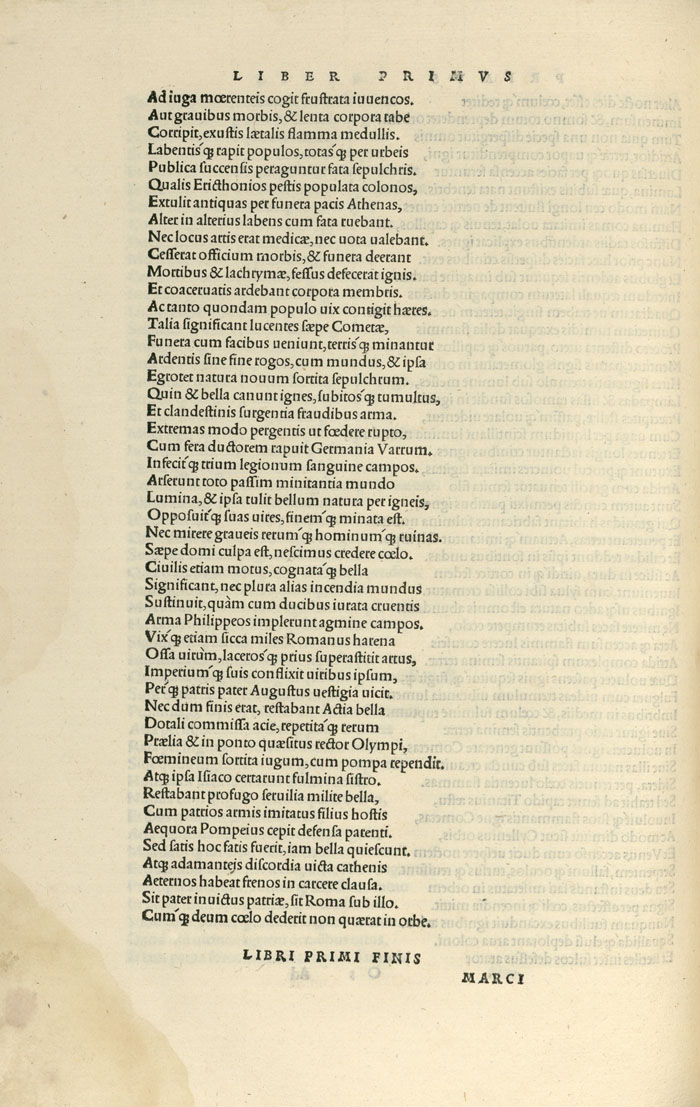 LIBER PRIMVS
Ad iuga mœrenteis cogit frustrata iuuencos.
Aut grauibus morbis, & lenta corpora tabe
Corripit, exustis lætalis flamma medullis.
Labentis'q; rapit populos, totas'q; per urbeis
Publica succensis peraguntur fata sepulchris.
Qualis Ericthonios pestis populata colonos,
Extulit antiquas per funera pacis Athenas,
Alter in alterius labens cum fata ruebant.
Nec locus artis erat medicæ, nec uota ualebant.
Cesserat officium morbis, & funera deerant
Mortibus & lachrymæ, fessus defecerat ignis.
Et coaceruatis ardebant corpora membris.
Ac tanto quondam populo uix contigit hæres.
Talia significant lucentes sæpe Cometæ,
Funera cum facibus ueniunt, terris'q; minantur
Ardentis sine fine rogos, cum mundus, & ipsa
Egrotet natura nouum sortita sepulchrum.
Quin & bella canunt ignes, subitos'q; tumultus,
Et clandestinis surgentia fraudibus arma.
Extremas modo pergentis ut fœdere rupto,
Cum fera ductorem rapuit Germania Varrum.
Infecit'q; trium legionum sanguine campos.
Arserunt toto passim minitantia mundo
Lumina, & ipsa tulit bellum natura per igneis,
Opposuit'q; suas uires, finem'q; minata est.
Nec mirere graueis rerum'q; hominum'q; ruinas.
Sæpe domi culpa est, nescimus credere cœlo.
Ciuilis etiam motus, cognata'q; bella
Significant, nec plura alias incendia mundus
Sustinuit, quàm cum ducibus iurata cruentis
Arma Philippeos implerunt agmine campos.
Vix'q; etiam sicca miles Romanus harena
Ossa uirûm, laceros'q; prius superastitit artus,
Imperium'q; suis conflixit uiribus ipsum,
Per'q; patris pater Augustus uestigia uicit.
Nec dum finis erat, restabant Actia bella
Dotali commissa acie, repetita'q; rerum
Prælia & in ponto quæsitus rector Olympi,
Fœmineum sortita iugum, cum pompa rependit.
Atq; ipsa Isiaco certarunt fulmina sistro.
Restabant profugo seruilia milite bella,
Cum patrios armis imitatus filius hostis
Aequora Pompeius cepit defensa parenti.
Sed satis hoc fatis fuerit, iam bella quiescunt.
Atq; adamanteis discordia uicta cathenis
Aeternos habeat frenos in carcere clausa.
Sit pater inuictus patriæ, sit Roma sub illo.
Cum'q; deum cœlo dederit non quærat in orbe.
LIBRI PRIMI FINIS
MARCI